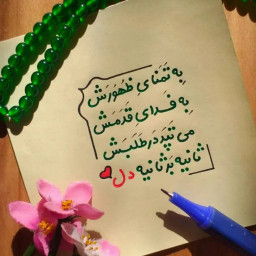 بِه تَمَنایِ ظُهورَش
بِه فَدایِ قَدَمَش
می تَپَد در طَلَبَش
ثانیه بر ثانیه دل